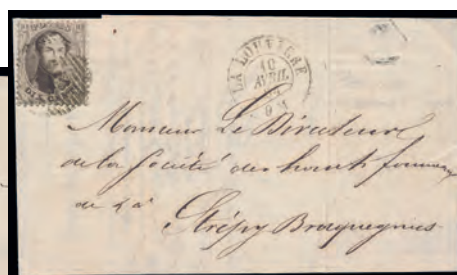 LA LOUVIERE
10
AVRIL
9 M
DIX CENTS
Monsieur Le Directeur
de la Société des hauts fourneaux
de La
Strépy Bracquegnies